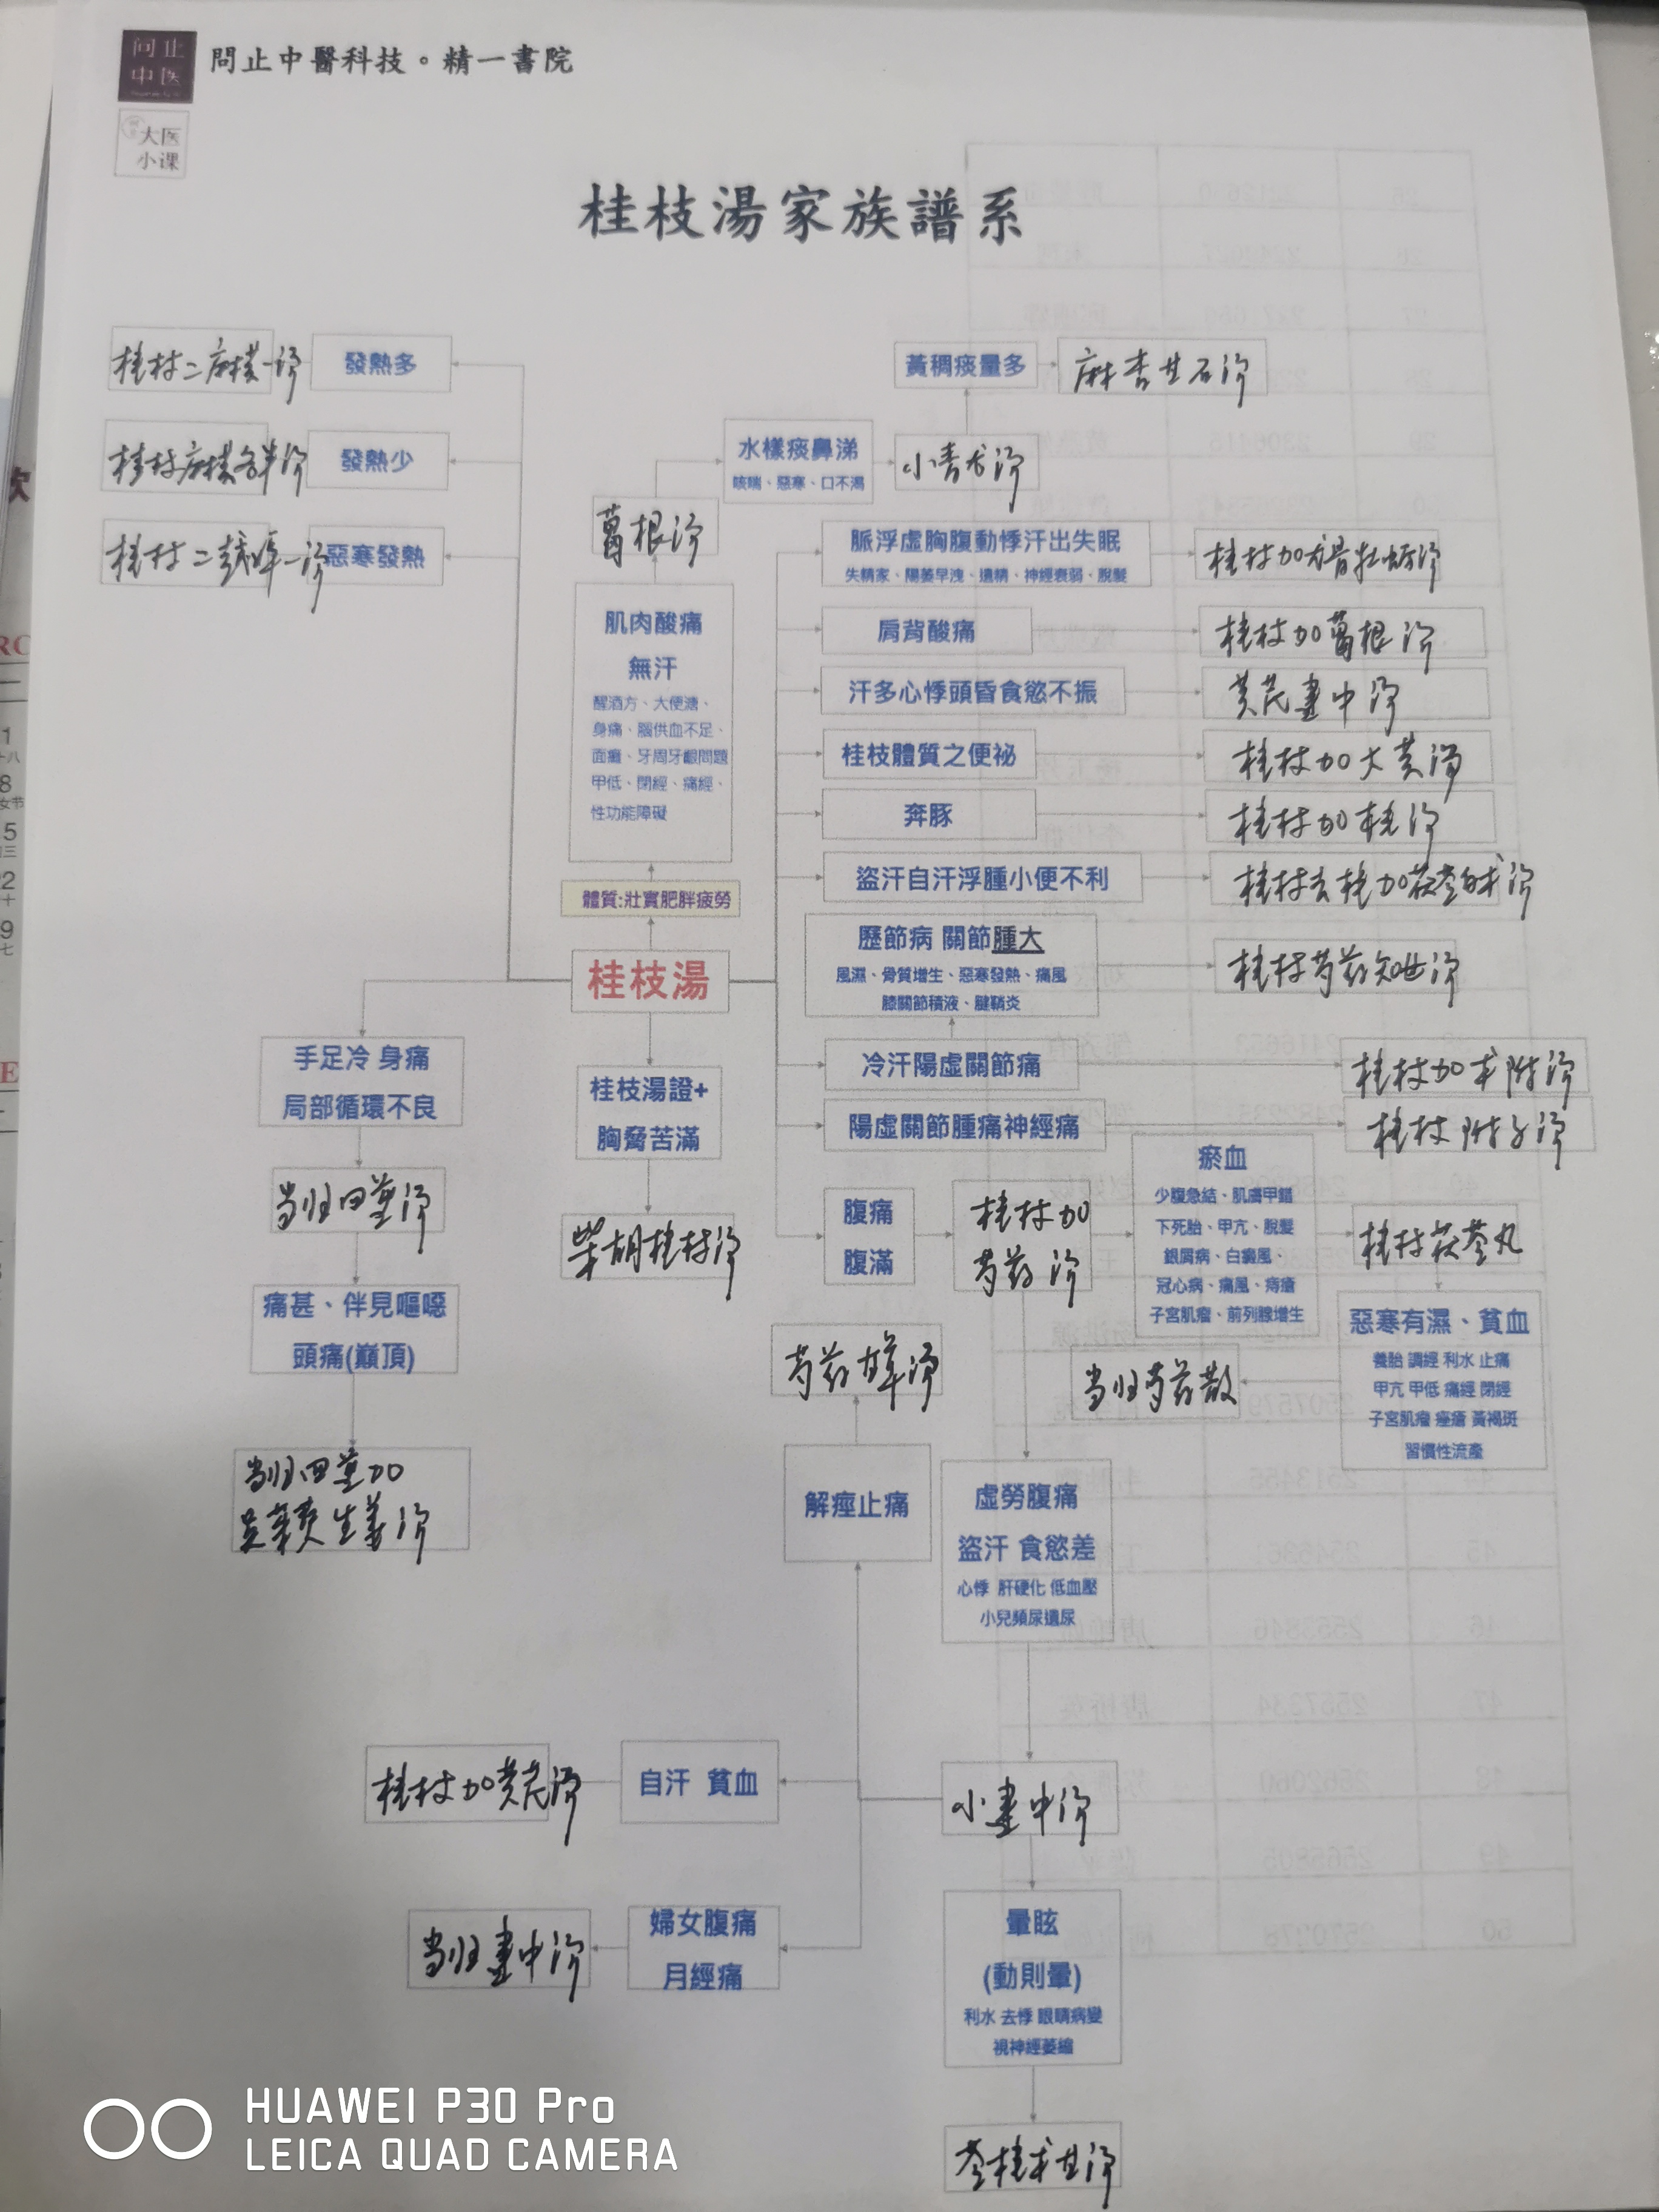 问止
中医
問止中醫科技。精一書院
大医
小课
桂枝湯家族譜系
桂枝二麻黄一汤
發熱多
黃稠痰量多
麻杏甘石汤
桂枝麻黄各半汤
發熱少
水樣痰鼻涕
咳喘、惡寒、口不渴
小青龙汤
葛根汤
桂枝二越婢一汤
惡寒發熱
脈浮虛胸腹動悸汗出失眠
失精家、陽萎早洩、遺精、神經衰弱、脫髮
桂枝加龙骨牡蛎汤
肌肉酸痛
無汗
醒酒方、大便溏、
身痛、腦供血不足、
面癱、牙周牙齦問題
甲低、閉經、痛經、
性功能障礙
肩背酸痛
桂枝加葛根汤
汗多心悸頭昏食慾不振
黄芪建中汤
桂枝體質之便祕
桂枝加大黄汤
奔豚
桂枝加桂汤
體質:壯實肥胖疲勞
盜汗自汗浮腫小便不利
桂枝去桂加茯苓白术汤
桂枝湯
歷節病 關節腫大
風濕、骨質增生、惡寒發熱、痛風
膝關節積液、腱鞘炎
桂枝芍药知母汤
手足冷 身痛
局部循環不良
桂枝湯證+
胸脅苦滿
冷汗陽虛關節痛
桂枝加术附汤
陽虛關節腫痛神經痛
桂枝附子汤
当归四逆汤
柴胡桂枝汤
腹痛
腹滿
桂枝加
芍药汤
瘀血
少腹急結、肌膚甲錯
下死胎、甲亢、脫髮
銀屑病、白癜風、
冠心病、痛風、痔瘡
子宮肌瘤、前列腺增生
桂枝茯苓丸
痛甚、伴見嘔噁
頭痛(巔頂)
芍药甘草汤
当归芍药散
惡寒有濕、貧血
養胎 調經 利水 止痛
甲亢 甲低 痛經 閉經
子宮肌瘤 痤瘡 黃褐斑
習慣性流產
当归四逆加
吴茱萸生姜汤
解痙止痛
虛勞腹痛
盜汗 食慾差
心悸 肝硬化 低血壓
小兒頻尿遺尿
桂枝加黄芪汤
自汗 貧血
小建中汤
当归建中汤
婦女腹痛
月經痛
暈眩
(動則暈)
利水 去悸 眼睛病變
視神經萎縮
苓桂术甘汤
HUAWEI P30 Pro
LEICA QUAD CAMERA